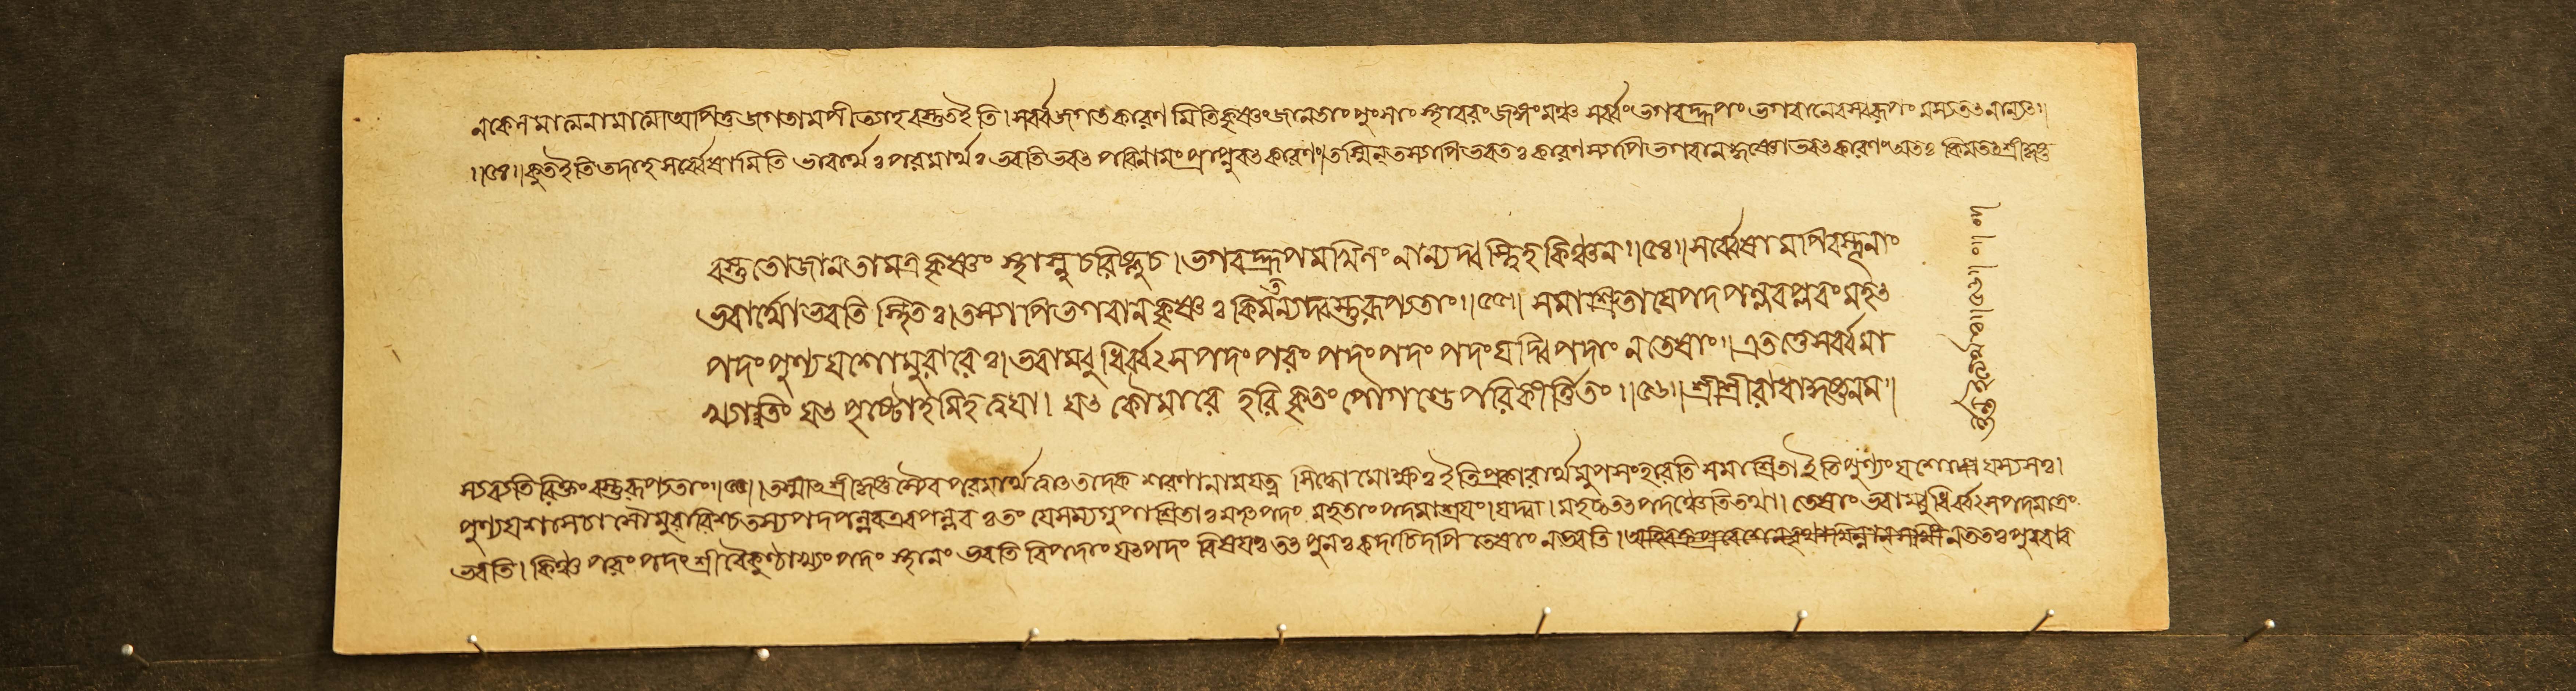 নকেনমানেনামামোঅপিতুজগতামপীত্যাহবস্তুতইতি।সর্ব্বজগতকারণমিতিকৃষ্ণংজানতাং পুংসাং স্থাবরংজঙ্গমঞ্চ সর্ব্বংভগবদ্রূপং ভগবানেবসর্ব্বরূপং নান্যৎ॥
॥৫৪॥কুতইতিতদাহসর্ব্বেষামিতি ভাবার্থঃপরমার্থঃ ভবতিভবৎ পরিনামংপ্রাপ্নুবৎকারণং।তস্মিন্তস্যাপিভবতঃকারণস্যাপিভগবানকৃষ্ণোভবৎকারণংঅতঃ কিমতৎশ্রীকৃষ্ণ
বস্তুতোজানতামত্রকৃষ্ণং স্থাস্নুচরিষ্ণুচ।ভগবদ্রূপমখিলং নান্যদ্বস্ত্বিহকিঞ্চন॥৫৪॥সর্ব্বেষামপিবস্তূনাং
ভবার্থোভবতিস্থিতঃ।তস্যাপিভগবানকৃষ্ণঃকিমন্যদ্বস্তুরূপ্যতাং॥৫৫॥ সমাশ্রিতাযেপদপল্লবপ্লবংমহৎ
পদংপুণ্যযশোমুরারেঃ।ভবামবুধির্ব্বৎসপদংপরং পদংপদং পদংযদ্বিপদাং নতেষাং॥এতত্তেসর্ব্বমা
খ্যাতং যৎপৃষ্টোহমিহত্বয়া। যৎ কৌমারে হরিকৃতংপৌগণ্ডেপরিকীর্ত্তিতং॥৫৬॥শ্রীশ্রীরাধাকৃষ্ণনম॥
স্যব্যতিরিক্তংবস্তুরূপ্যতাং॥৫৫॥তস্মাৎশ্রীকৃষ্ণস্যৈবপরমার্থত্বাৎতদেক শরণানামযত্ন সিদ্ধোমোক্ষঃইতিপ্রকারার্থমুপসংহরতিসমাশ্রিতাইতিপুণ্যংযশোযস্যসঃ।
পুণ্যযশাসচাসৌমুরারিশ্চতস্যপদপল্লবএবপল্লবঃতং যেসম্যগুপাশ্রিতাঃমহৎপদং মহতাংপদমাশ্রয়ং।যদ্বা।মহচ্চতৎপদঞ্চেতিতথা।তেষাং ভবাম্বুধির্ব্বৎসপদমাত্রং
ভবতি।কিঞ্চপরংপদংশ্রীবৈকুণ্ঠাখ্যংপদং স্থানং ভবতি বিপদাং যৎপদং বিষয়ঃতৎপুনঃকদাচিদপি তেষাং নভবতি।